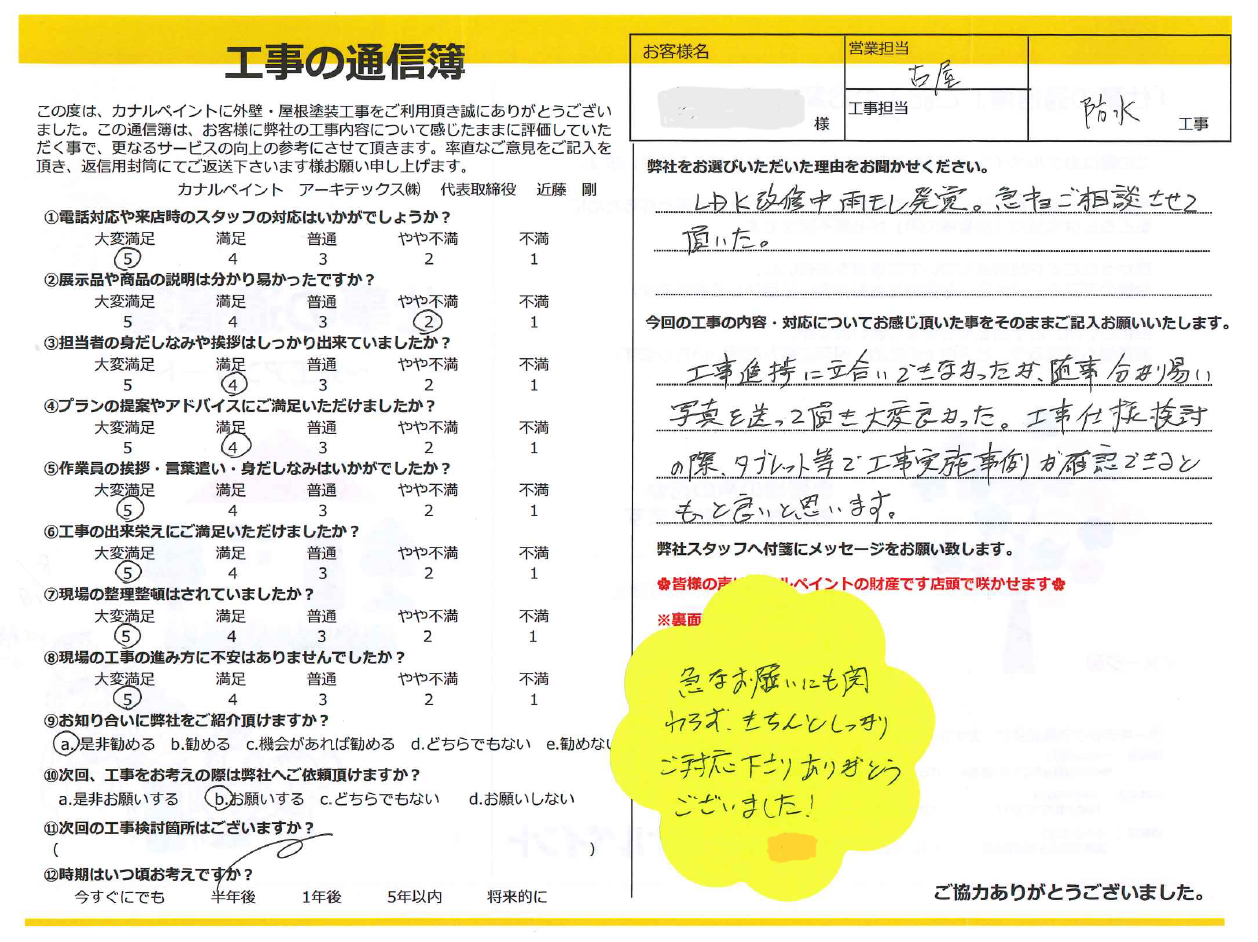 工事の通信簿
この度は、カナルペイントに外壁・屋根塗装工事をご利用頂き誠にありがとうござい
ました。この通信簿は、お客様に弊社の工事内容について感じたままに評価していた
だく事で、更なるサービスの向上の参考にさせて頂きます。率直なご意見をご記入を
頂き、返信用封筒にてご返送下さいます様お願い申し上げます。
カナルペイント アーキテックス㈱ 代表取締役 近藤 剛
①電話対応や来店時のスタッフの対応はいかがでしょうか？
大変満足 満足 普通 やや不満 不満
5 4 3 2 1
②展示品や商品の説明は分かり易かったですか？
大変満足 満足 普通 やや不満 不満
5 4 3 2 1
③担当者の身だしなみや挨拶はしっかり出来ていましたか？
大変満足 満足 普通 やや不満 不満
5 4 3 2 1
④プランの提案やアドバイスにご満足いただけましたか？
大変満足 満足 普通 やや不満 不満
5 4 3 2 1
⑤作業員の挨拶・言葉遣い・身だしなみはいかがでしたか？
大変満足 満足 普通 やや不満 不満
5 4 3 2 1
⑥工事の出来栄えにご満足いただけましたか？
大変満足 満足 普通 やや不満 不満
5 4 3 2 1
⑦現場の整理整頓はされていましたか？
大変満足 満足 普通 やや不満 不満
5 4 3 2 1
⑧現場の工事の進み方に不安はありませんでしたか？
大変満足 満足 普通 やや不満 不満
5 4 3 2 1
⑨お知り合いに弊社をご紹介頂けますか？
a.是非勧める b.勧める c.機会があれば勧める d.どちらでもない e.勧めない
⑩次回、工事をお考えの際は弊社へご依頼頂けますか？
a.是非お願いする b.お願いする c.どちらでもない d.お願いしない
⑪次回の工事検討箇所はございますか？
( )
⑫時期はいつ頃お考えですか？
今すぐにでも 半年後 1年後 5年以内 将来的に
お客様名
様
営業担当
古屋
工事担当
防水 工事
弊社をお選びいただいた理由をお聞かせください。
LDK改修中雨モレ発覚。急きょご相談させて
頂いた。
今回の工事の内容・対応についてお感じ頂いた事をそのままご記入お願いいたします。
工事進捗に立合いできなかったが、随事分かり易い
写真を送って頂き大変良かった。工事仕様検討
の際、タブレット等で工事実施事例が確認できると
もっと良いと思います。
弊社スタッフへ付箋にメッセージをお願い致します。
✿皆様の声はカナルペイントの財産です店頭で咲かせます✿
※裏面
急なお願いにも関
わらず、きちんとしっかり
ご対応下さりありがとう
ございました！
ご協力ありがとうございました。